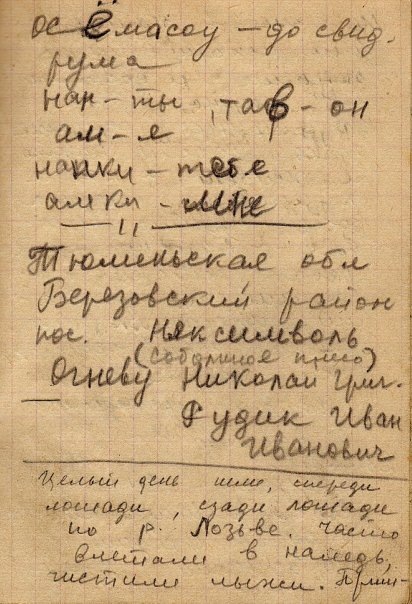 ос Ёмасоу – до свид.
рума
нан – ты, тав – он
ам – я
нанки – тебе
амки – мне
— " —
Тюменьская обл
Березовский район
пос. Няксимволь
(соболиное
Огневу Николай Григ.
Рудик Иван
Иванович
Целый день шли, спереди
лошади, сзади лошади
по р. Лозьве. Часто
влетали в наледь,
чистили лыжи.